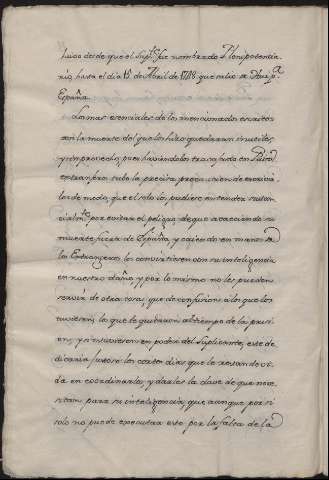 hizo desde que el Sup.te fue nombrado Plenipotencia
rio, hasta el dia 15 de Abril de 1748 que salio de Paris p.a
España.
Los mas esenciales de los mencionados escritos
con la muerte del que los hizo quedaran inutiles
y sin provecho, pues haviendolos trabajado en Pais
estrangero tubo la precisa precaucion de escrivir
los de modo, que el solo los pudiese entender sustan
cialm.te por evitar el peligro de que acaeciendo su
muerte fuera de España, y cayendo en manos de
los Estrangeros los convirtiesen con su inteligencia
en nuestro daño, y por lo mismo no les pueden
servir de otra cosa, que de confusion a los que los
tuvieren, lo que le quitaron al tiempo de la prisi
on, y si estuviesen en poder del Suplicante, este de
dicaria sobre los cortos dias que le restan de vi
da en coordinarlos, y darles la clave de que nece
sitan para su inteligencia, que aunque por si
solo no puede executar esto por la falta de la